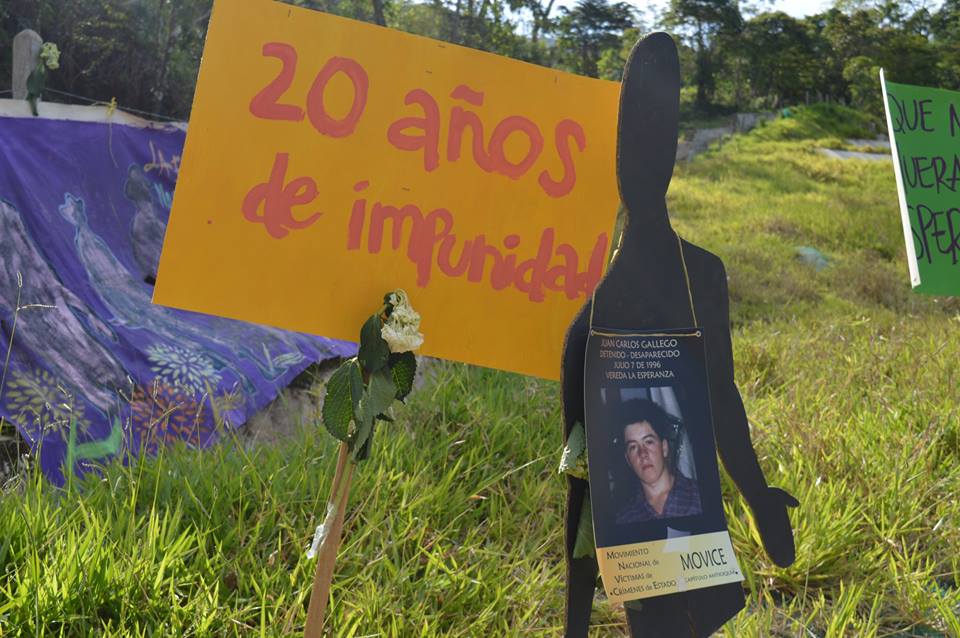 20 años
de impunidad
QUE N
SPER
JUAN CARLOS GALLEGO
DETENIDO - DESAPARECIDO
JULIO 7 DE 1996
VEREDA LA ESPERANZA
MOVIMIENTO
NACIONAL de
VÍCTIMAS de
CRÍMENES de ESTADO
MOVICE
CAPÍTULO ANTIOQUIA